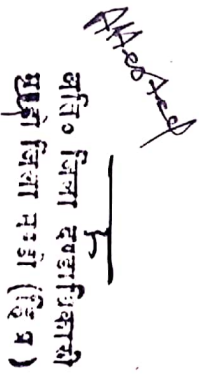 Attested
अति० जिला दण्डाधिकारी
जिला मण्डी (हि प्र)